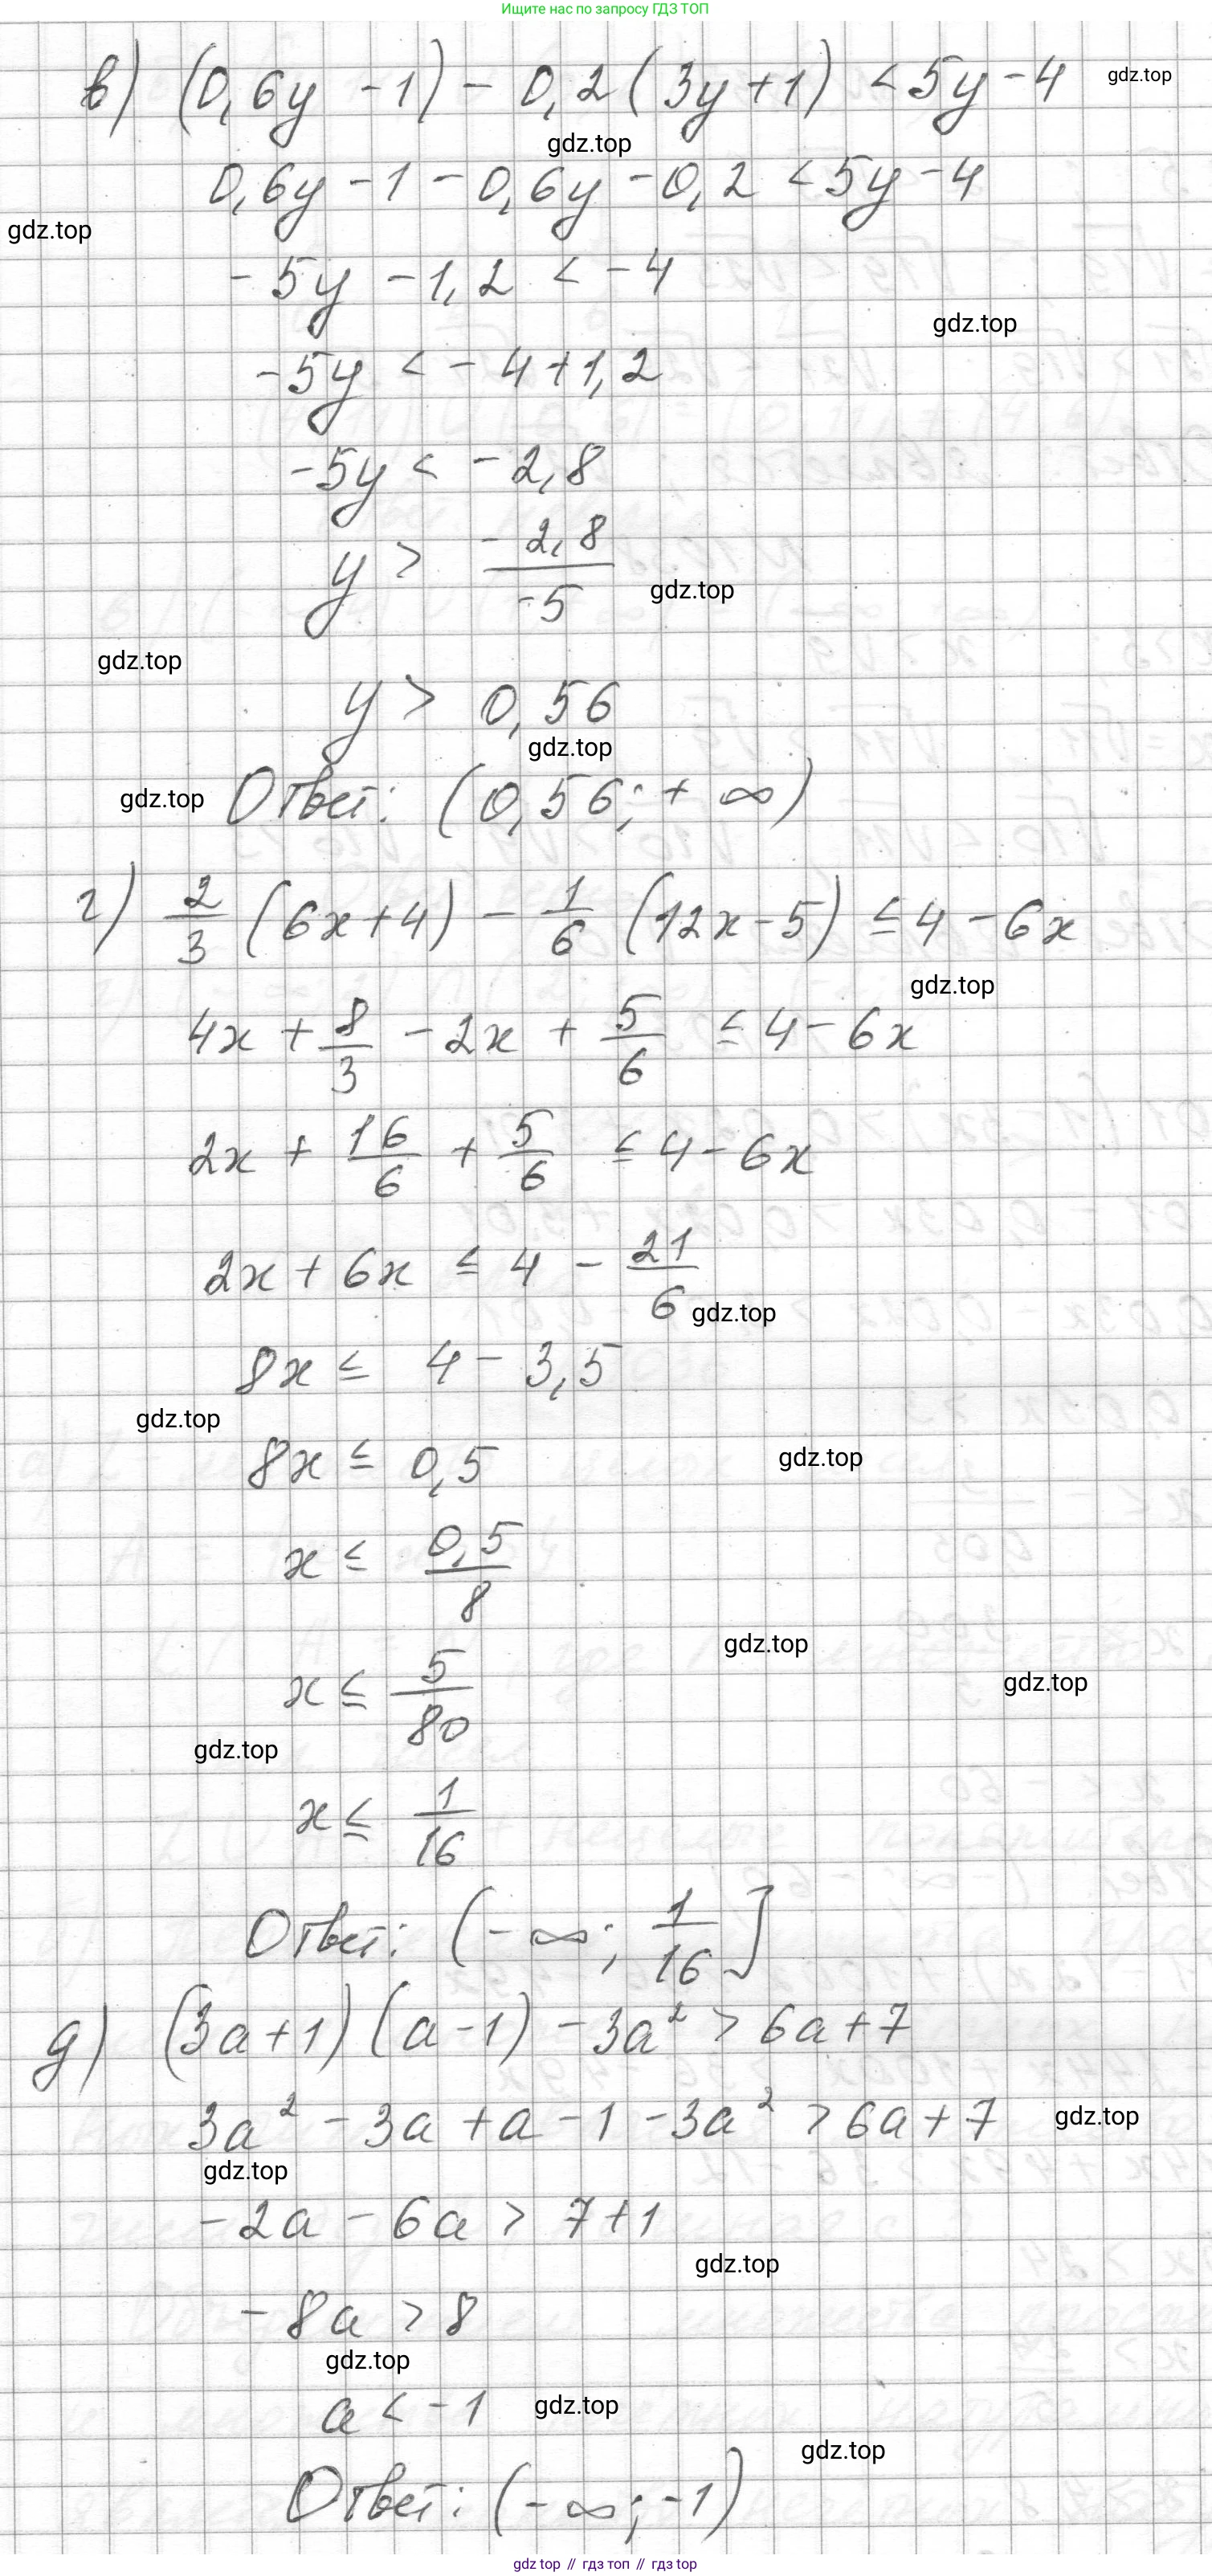 Ищите нас по запросу ГДЗ ТОП
в) (0,6y - 1) - 0,2(3y + 1) < 5y - 4
gdz.top
gdz.top
0,6y - 1 - 0,6y - 0,2 < 5y - 4
gdz.top
-5y - 1,2 < -4
gdz.top
-5y < -4 + 1,2
-5y < -2,8
y > -2,8/-5
gdz.top
gdz.top
y > 0,56
gdz.top
gdz.top
Ответ: (0,56; +∞)
г) 2/3 (6x + 4) - 1/6 (12x - 5) ≤ 4 - 6x
gdz.top
4x + 8/3 - 2x + 5/6 ≤ 4 - 6x
2x + 16/6 + 5/6 ≤ 4 - 6x
2x + 6x ≤ 4 - 21/6
gdz.top
8x ≤ 4 - 3,5
gdz.top
8x ≤ 0,5
gdz.top
x ≤ 0,5/8
gdz.top
x ≤ 5/80
gdz.top
gdz.top
x ≤ 1/16
Ответ: (-∞; 1/16]
д) (3a + 1)(a - 1) - 3a² > 6a + 7
3a² - 3a + a - 1 - 3a² > 6a + 7
gdz.top
gdz.top
-2a - 6a > 7 + 1
gdz.top
-8a > 8
gdz.top
a < -1
gdz.top
gdz.top
Ответ: (-∞; -1)
gdz top // гдз топ // гдз top